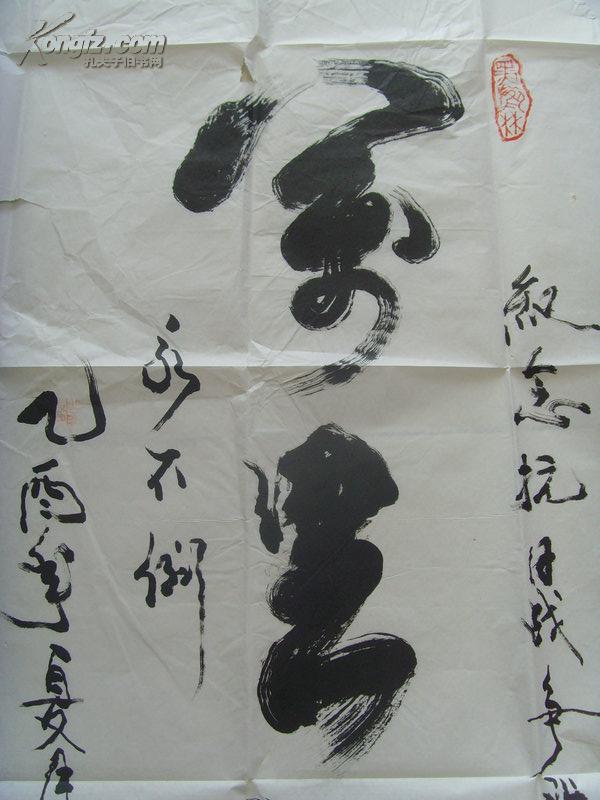 纪念抗日战争
萬里
永不倒
乙酉年夏月
Kongfz.com
孔夫子旧书网